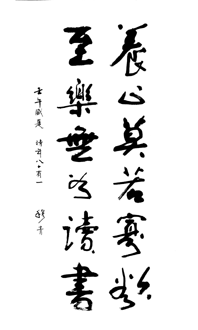 養心莫若寡欲
至樂無如讀書
壬午咸夏 時年八十有一
穆青